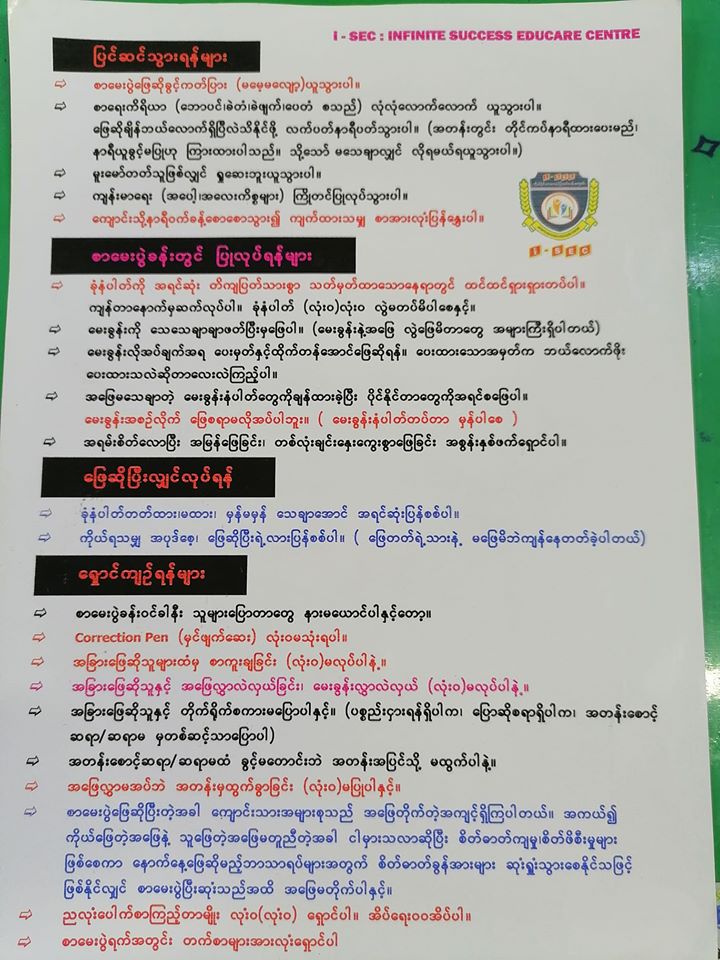 i - SEC : INFINITE SUCCESS EDUCARE CENTRE
ပြင်ဆင်သွားရန်များ
စာမေးပွဲဖြေဆိုခွင့်ကတ်ပြား (မမေ့မလျော့)ယူသွားပါ။
စာရေးကိရိယာ (ဘောပင်၊ခဲတံ၊ခဲဖျက်၊ပေတံ စသည်) လုံလုံလောက်လောက် ယူသွားပါ။
ဖြေဆိုချိန်ဘယ်လောက်ရှိပြီလဲသိနိုင်ဖို့ လက်ပတ်နာရီပတ်သွားပါ။ (အတန်းတွင်း တိုင်ကပ်နာရီထားပေးမည်၊
နာရီယူခွင့်မပြုဟု ကြားထားပါသည်။ သို့သော် မသေချာလျှင် လိုရမယ်ရယူသွားပါ။)
မူးမော်တတ်သူဖြစ်လျှင် ရှူဆေးဘူးယူသွားပါ။
ကျန်းမာရေး (အပေါ့၊အလေးကိစ္စများ) ကြိုတင်ပြုလုပ်သွားပါ။
ကျောင်းသို့နာရီဝက်ခန့်စောစောသွား၍ ကျက်ထားသမျှ စာအားလုံးပြန်နွှေးပါ။
I-SEC
I-SEC
စာမေးပွဲခန်းတွင် ပြုလုပ်ရန်များ
ခုံနံပါတ်ကို အရင်ဆုံး တိကျပြတ်သားစွာ သတ်မှတ်ထားသောနေရာတွင် ထင်ထင်ရှားရှားတပ်ပါ။
ကျန်တာနောက်မှဆက်လုပ်ပါ။ ခုံနံပါတ် (လုံးဝ)လုံးဝ လွဲမတပ်မိပါစေနှင့်။
မေးခွန်းကို သေသေချာချာဖတ်ပြီးမှဖြေပါ။ (မေးခွန်းနဲ့အဖြေ လွဲဖြေမိတာတွေ အများကြီးရှိပါတယ်)
မေးခွန်းလိုအပ်ချက်အရ ပေးမှတ်နှင့်ထိုက်တန်အောင်ဖြေဆိုရန်။ ပေးထားသောအမှတ်က ဘယ်လောက်ဖိုး
ပေးထားသလဲဆိုတာလေးလဲကြည့်ပါ။
အဖြေမသေချာတဲ့ မေးခွန်းနံပါတ်တွေကိုချန်ထားခဲ့ပြီး ပိုင်နိုင်တာတွေကိုအရင်စဖြေပါ။
မေးခွန်းအစဉ်လိုက် ဖြေစရာမလိုအပ်ပါဘူး။ ( မေးခွန်းနံပါတ်တပ်တာ မှန်ပါစေ )
အရမ်းစိတ်လောပြီး အမြန်ဖြေခြင်း၊ တစ်လုံးချင်းနှေးကွေးစွာဖြေခြင်း အစွန်းနှစ်ဖက်ရှောင်ပါ။
ဖြေဆိုပြီးလျှင်လုပ်ရန်
ခုံနံပါတ်တတ်ထား၊မထား၊ မှန်မမှန် သေချာအောင် အရင်ဆုံးပြန်စစ်ပါ။
ကိုယ်ရသမျှ အပုဒ်စေ့၊ ဖြေဆိုပြီးရဲ့လားပြန်စစ်ပါ။ ( ဖြေတတ်ရဲ့သားနဲ့ မဖြေမိဘဲကျန်နေတတ်ခဲ့ပါတယ်)
ရှောင်ကျဉ်ရန်များ
စာမေးပွဲခန်းဝင်ခါနီး သူများပြောတာတွေ နားမယောင်ပါနှင့်တော့။
Correction Pen (မှင်ဖျက်ဆေး) လုံးဝမသုံးရပါ။
အခြားဖြေဆိုသူများထံမှ စာကူးချခြင်း (လုံးဝ)မလုပ်ပါနဲ့။
အခြားဖြေဆိုသူနှင့် အဖြေလွှာလဲလှယ်ခြင်း၊ မေးခွန်းလွှာလဲလှယ် (လုံးဝ)မလုပ်ပါနဲ့။
အခြားဖြေဆိုသူနှင့် တိုက်ရိုက်စကားမပြောပါနှင့်။ (ပစ္စည်းငှားရန်ရှိပါက၊ ပြောဆိုစရာရှိပါက၊ အတန်းစောင့်
ဆရာ/ဆရာမ မှတစ်ဆင့်သာပြောပါ)
အတန်းစောင့်ဆရာ/ဆရာမထံ ခွင့်မတောင်းဘဲ အတန်းအပြင်သို့ မထွက်ပါနဲ့။
အဖြေလွှာမအပ်ဘဲ အတန်းမှထွက်ခွာခြင်း (လုံးဝ)မပြုပါနှင့်။
စာမေးပွဲဖြေဆိုပြီးတဲ့အခါ ကျောင်းသားအများစုသည် အဖြေတိုက်တဲ့အကျင့်ရှိကြပါတယ်။ အကယ်၍
ကိုယ်ဖြေတဲ့အဖြေနဲ့ သူဖြေတဲ့အဖြေမတူညီတဲ့အခါ ငါမှားသလာဆိုပြီး စိတ်ဓာတ်ကျမှု၊စိတ်ဖိစီးမှုများ
ဖြစ်စေကာ နောက်နေ့ဖြေဆိုမည့်ဘာသာရပ်များအတွက် စိတ်ဓာတ်ခွန်အားများ ဆုံးရှုံးသွားစေနိုင်သဖြင့်
ဖြစ်နိုင်လျှင် စာမေးပွဲပြီးဆုံးသည်အထိ အဖြေမတိုက်ပါနှင့်။
ညလုံးပေါက်စာကြည့်တာမျိုး လုံးဝ(လုံးဝ) ရှောင်ပါ။ အိပ်ရေးဝဝအိပ်ပါ။
စာမေးပွဲရက်အတွင်း တက်စာများအားလုံးရှောင်ပါ